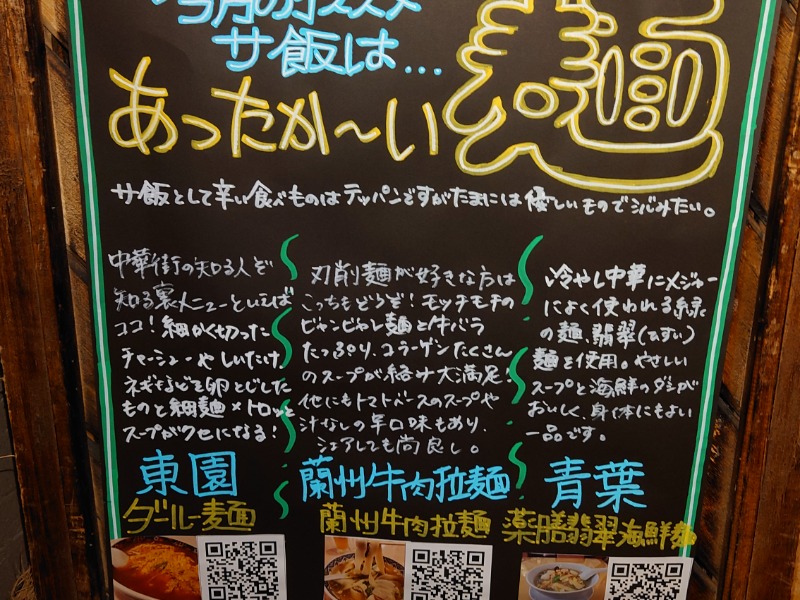 今月のオススメ
サ飯は...
麺
あったか〜い
サ飯として辛い食べものはテッパンですがたまには優しいものでシバみたい。
中華街の知る人ぞ
知る裏メニューといえば
ココ!細かく切った
チャーシューやしいたけ、
ネギなどを卵とじした
ものと細麺×トロッと
スープがクセになる!
東園
ダールー麺
刀削麺が好きな方は
こっちもどうぞ!モッチモチの
ビャンビャン麺と牛バラ
たっぷり、コラーゲンたくさん
のスープが絡み大満足!
他にもトマトベースのスープや
汁なしの辛口味もあり、
シェアしても尚良し。
蘭州牛肉拉麺
蘭州牛肉拉麺
冷やし中華にメジャー
によく使われる緑
の麺、翡翠(ひすい)
麺を使用。やさしい
スープと海鮮のダシが
おいしく、身体にもよい
一品です。
青葉
薬膳翡翠海鮮麺